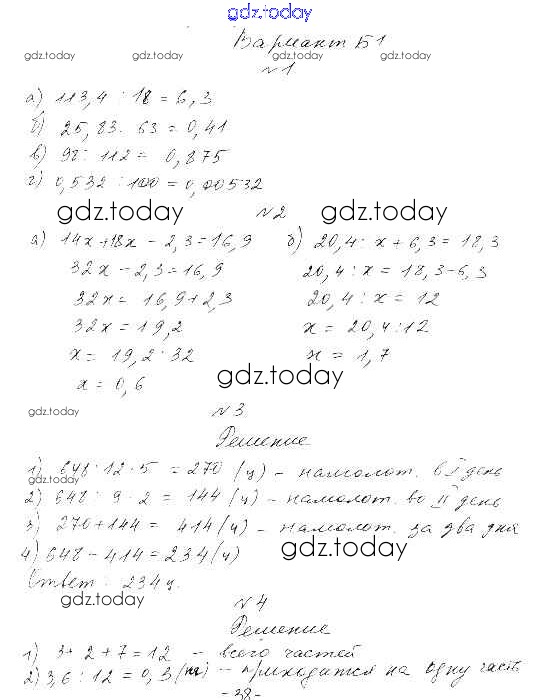 gdz.today
Вариант Б1
gdz.today gdz.today gdz.today gdz.today
№1
а) 113,4 : 18 = 6,3
б) 25,83 : 63 = 0,41
в) 98 : 112 = 0,875
г) 0,532 : 100 = 0,00532
gdz.today №2 gdz.today
а) 14x+18x - 2,3 = 16,9 б) 20,4 : x + 6,3 = 18,3
32x - 2,3 = 16,9 20,4 : x = 18,3-6,3
32x = 16,9+2,3 20,4 : x = 12
32x = 19,2 x = 20,4:12
x = 19,2 : 32 x = 1,7
x = 0,6 gdz.today
gdz.today №3
Решение
1) 648 : 12 · 5 = 270 (ц) - намолот. в I день
gdz.today
2) 648 : 9 · 2 = 144 (ц) - намолот. во II день
3) 270+144 = 414 (ц) - намолот. за два дня
4) 648 - 414 = 234 (ц) gdz.today
Ответ: 234 ц.
gdz.today №4 gdz.today
Решение
1) 3+2+7=12 - всего частей
2) 3,6 : 12 = 0,3 (кг) - приходится на одну часть
gdz.today - 38 - gdz.today